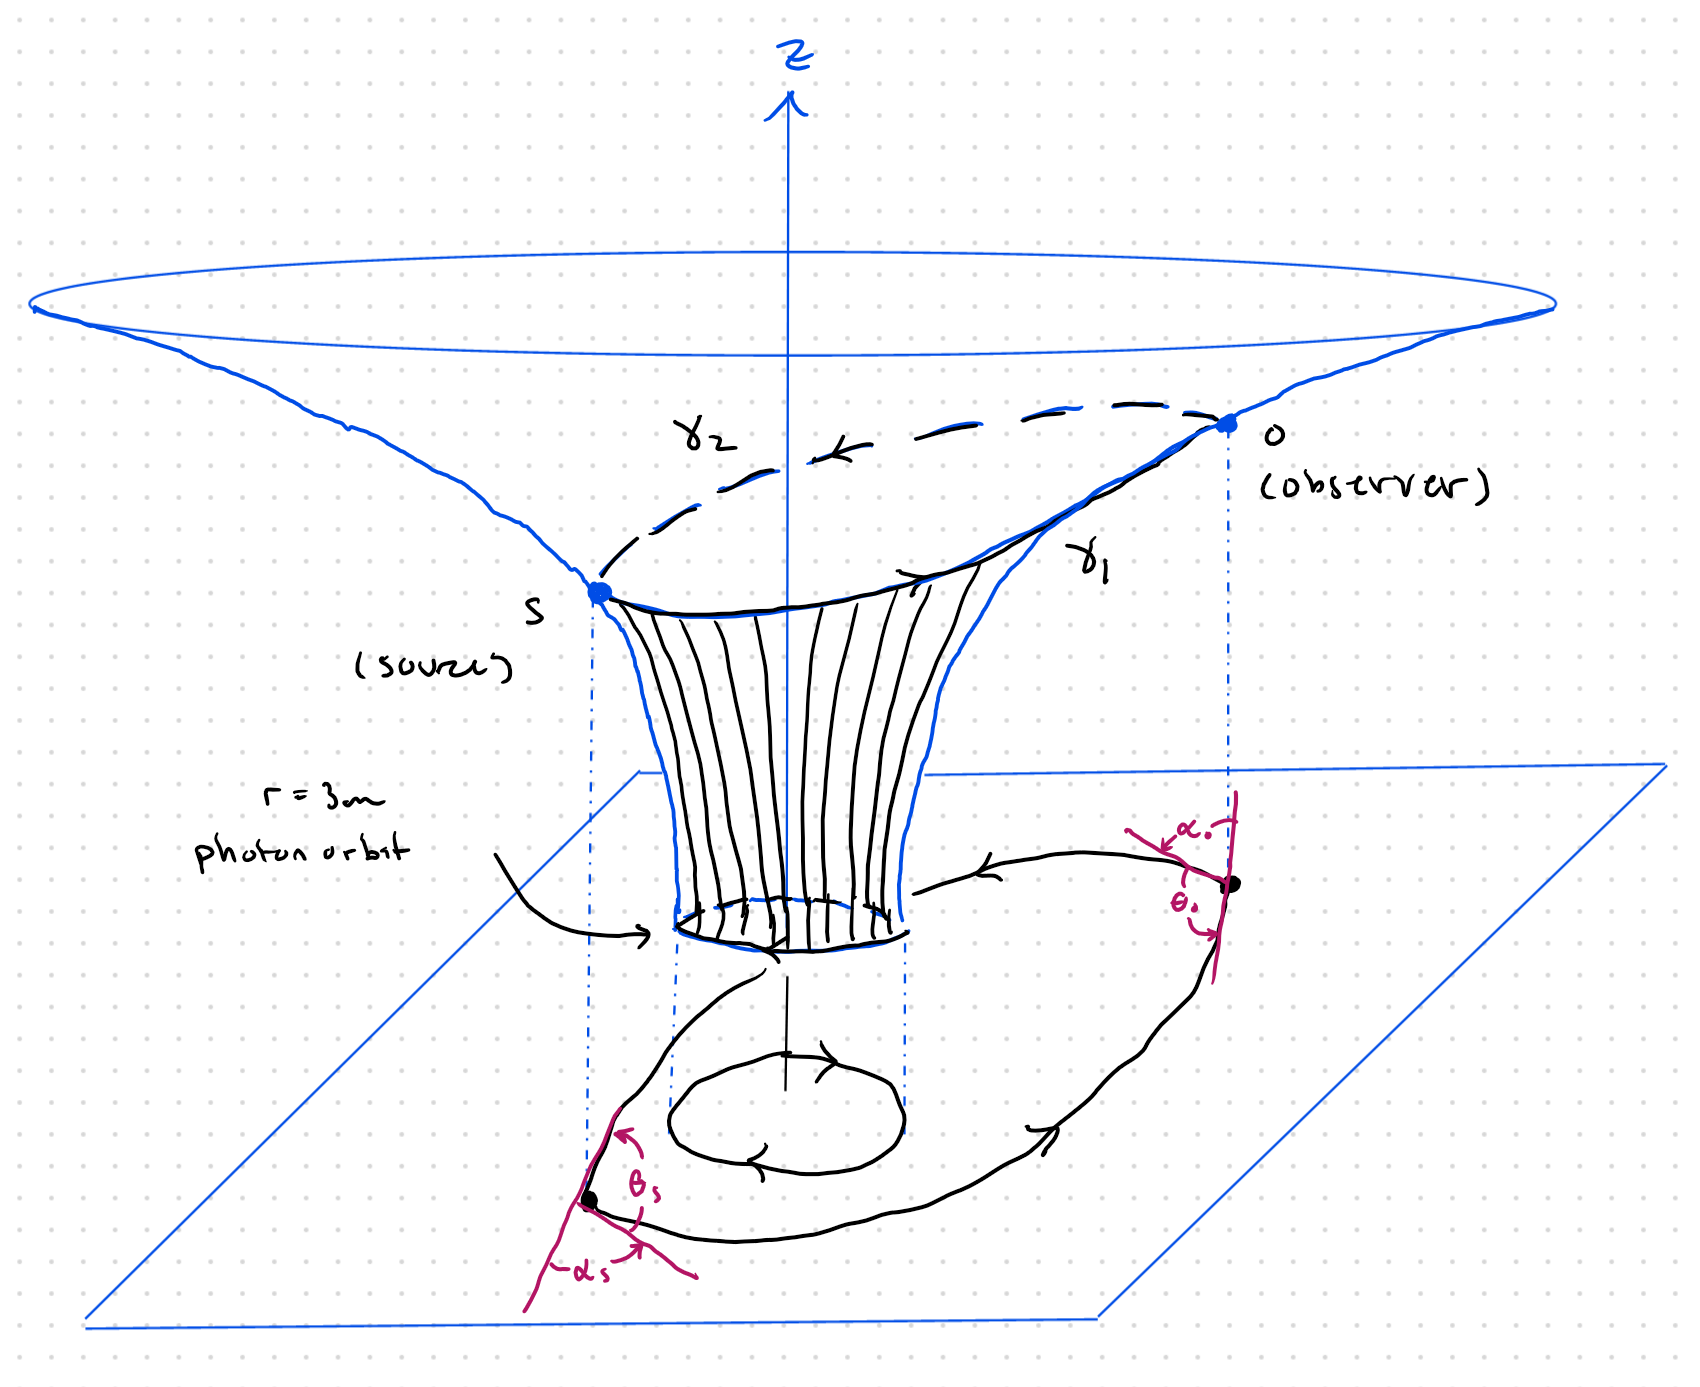 z
γ₂
O
(observer)
γ₁
S
(source)
r = 3m
photon orbit
α₀
θ₀
θₛ
αₛ